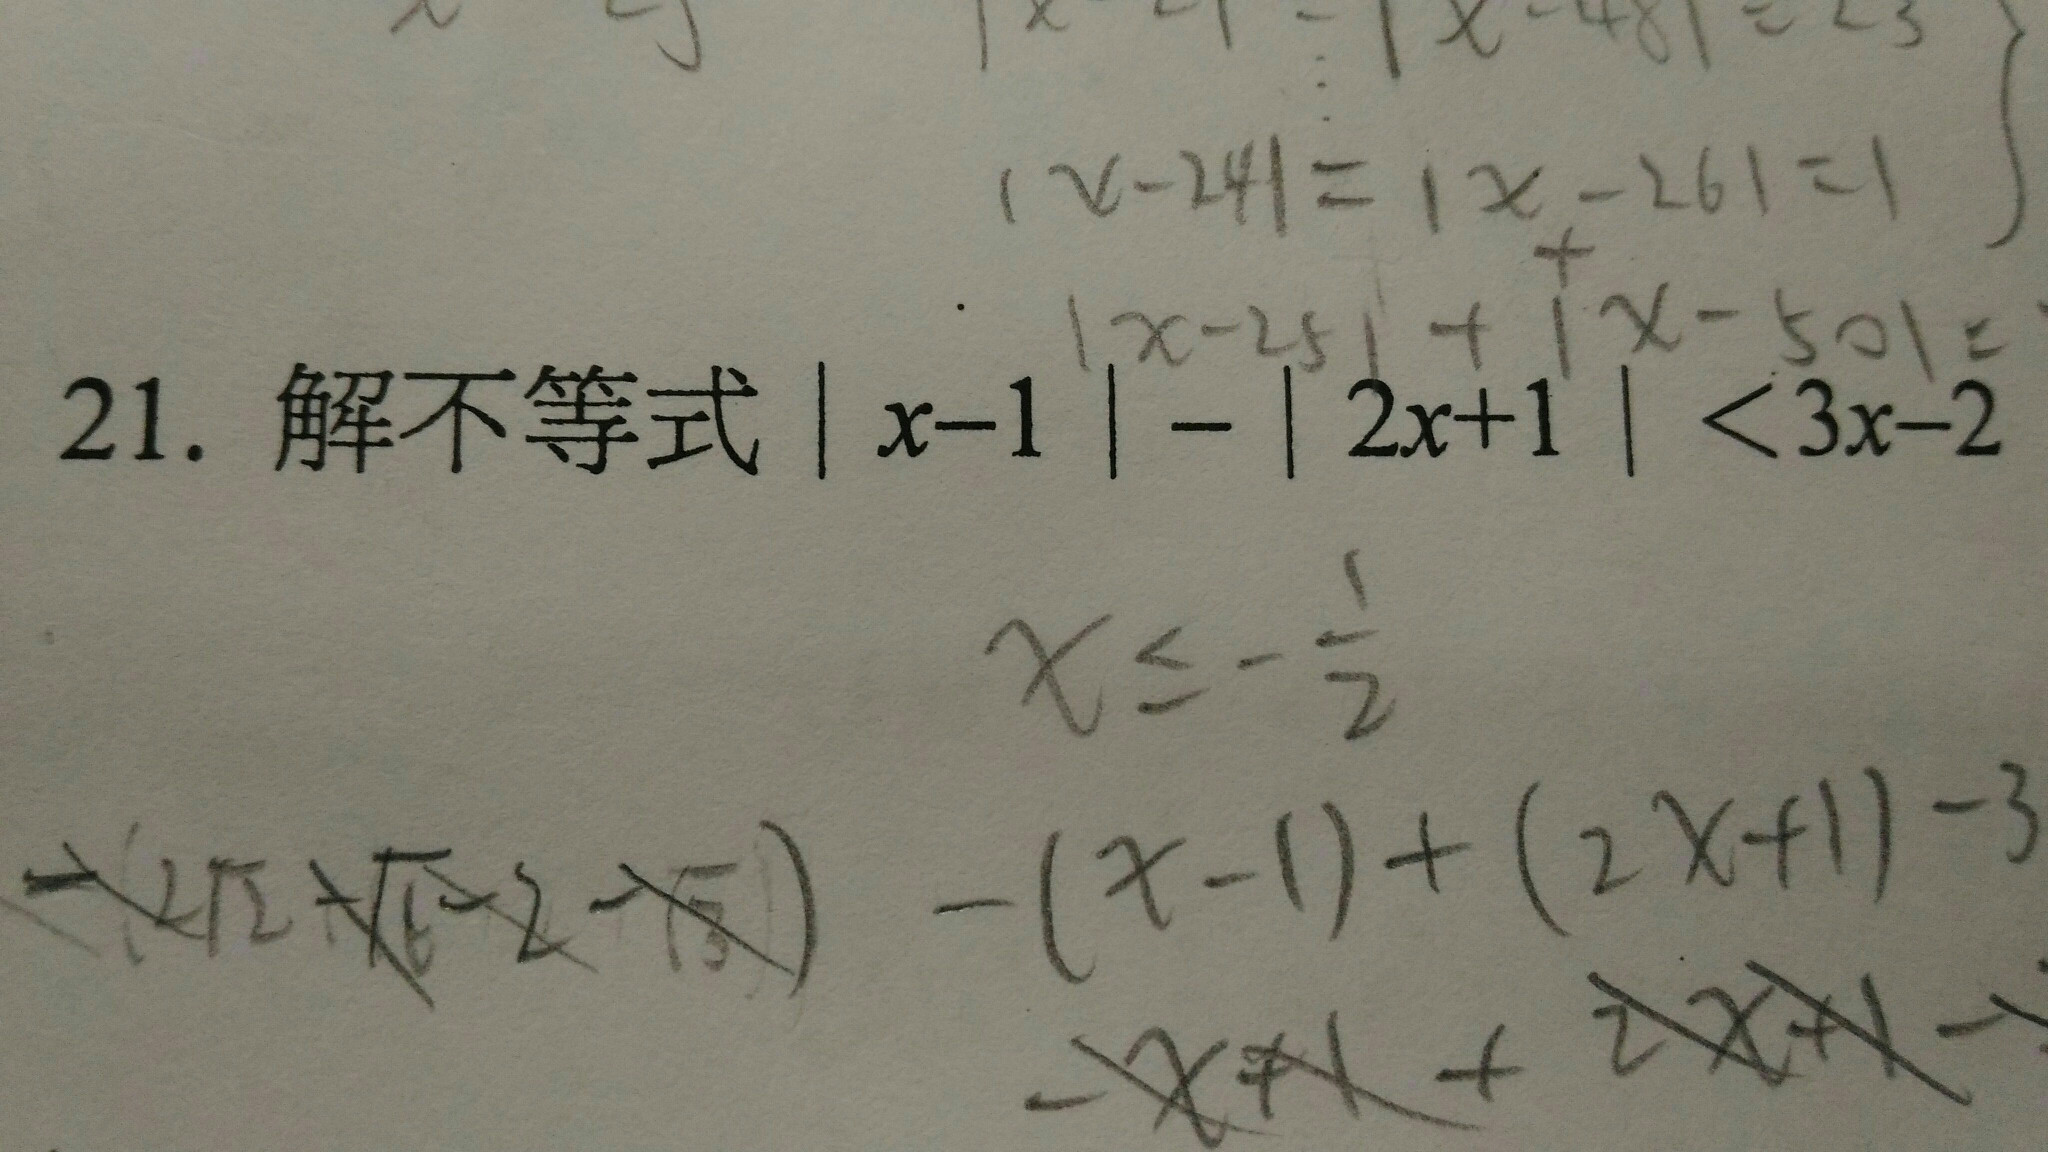 |x-2| = |x-48| = 23
⋮
|x-24| = |x-26| = 1
+
|x-25| + |x-50| =
21. 解不等式 | x–1 | – | 2x+1 | < 3x–2
x ≤ - 1/2
-(2√2+√6-2-√3) -(x-1)+(2x+1)-3
-x+1 + 2x+1 -